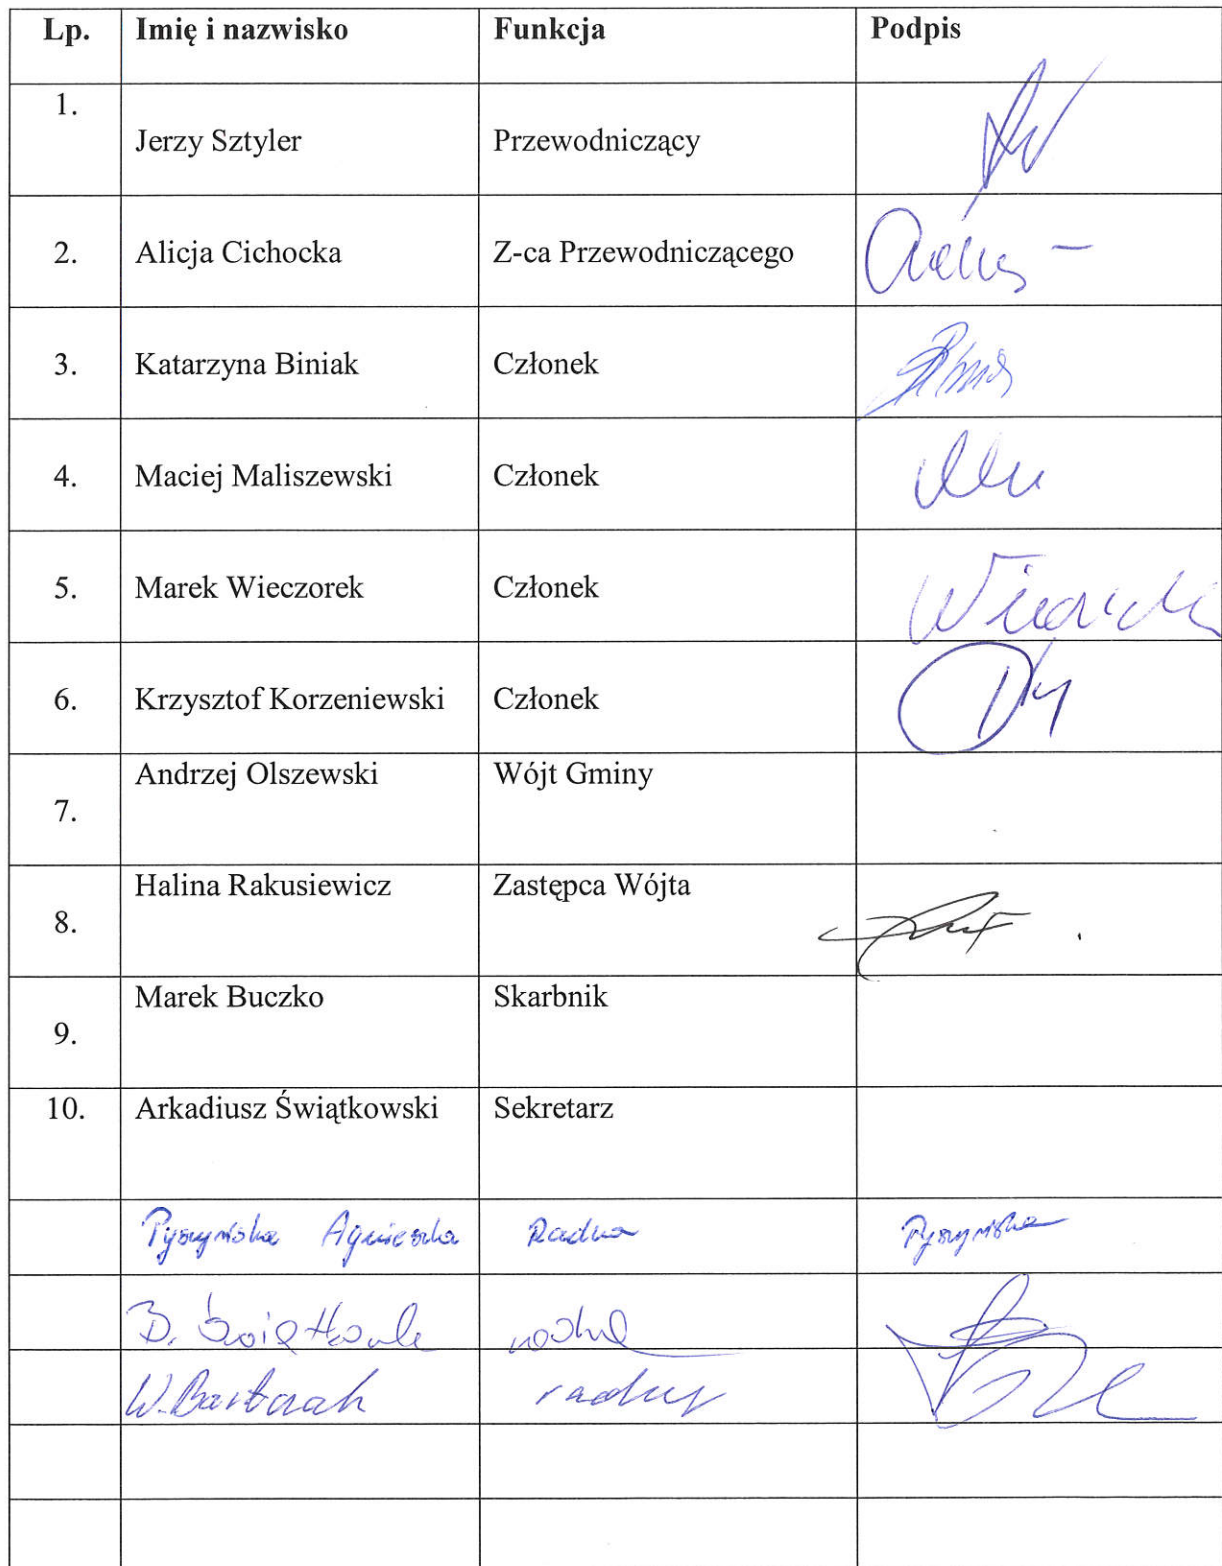 Lp. Imię i nazwisko Funkcja Podpis
1. Jerzy Sztyler Przewodniczący
2. Alicja Cichocka Z-ca Przewodniczącego
3. Katarzyna Biniak Członek
4. Maciej Maliszewski Członek
5. Marek Wieczorek Członek
6. Krzysztof Korzeniewski Członek
7. Andrzej Olszewski Wójt Gminy
8. Halina Rakusiewicz Zastępca Wójta
9. Marek Buczko Skarbnik
10. Arkadiusz Świątkowski Sekretarz
Pyszyńska Agnieszka Radna Pyszyńska
B.
W. Bartczak radny